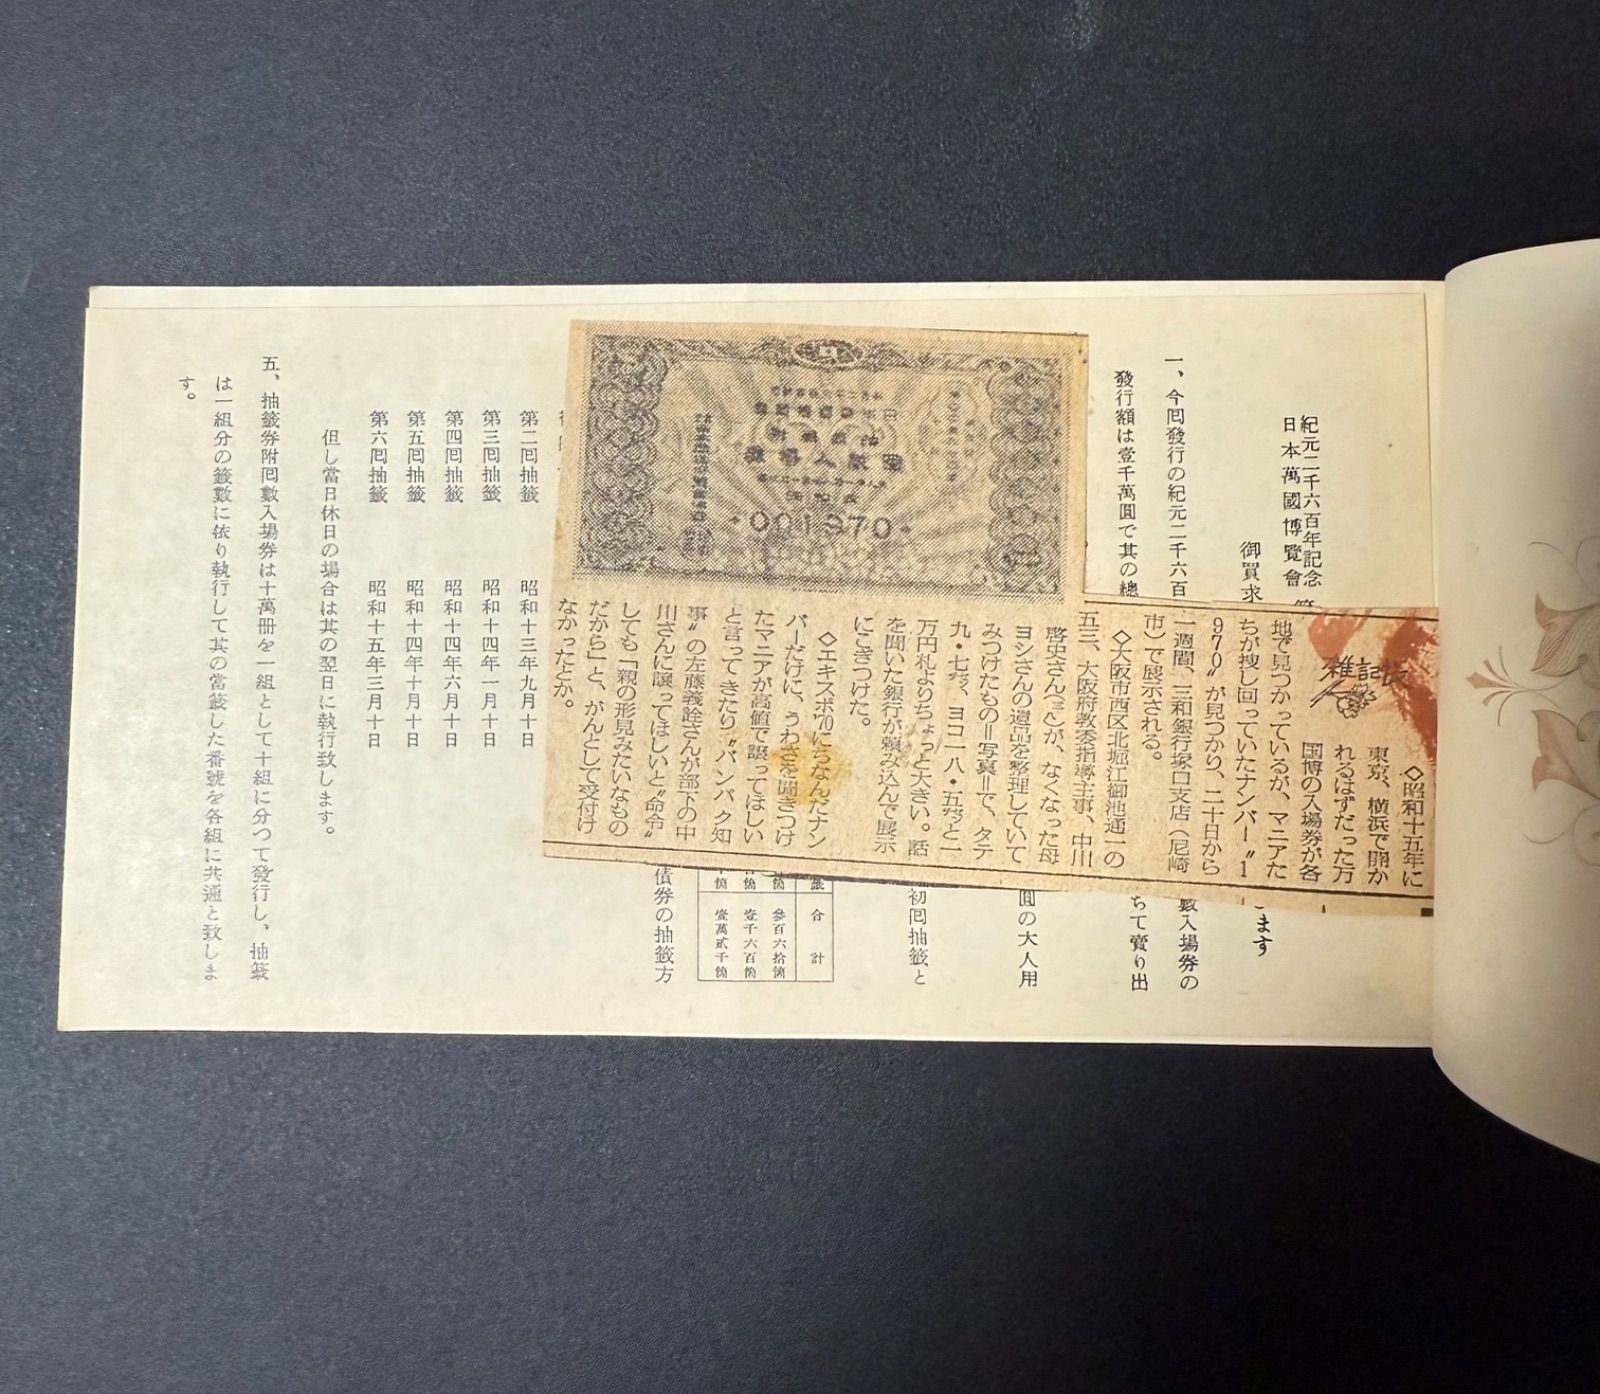 紀元二千六百年記念
日本萬國博覽會
御買求
ます
一、今囘發行の紀元二千六百
數入場券の
發行額は壹千萬圓で其の總
ちて賣り出
圓の大人用
初囘抽籤と
合計
參百六拾箇
壹千六百箇
壹萬貳千箇
債券の抽籤方
第二囘抽籤 昭和十三年九月十日
第三囘抽籤 昭和十四年一月十日
第四囘抽籤 昭和十四年六月十日
第五囘抽籤 昭和十四年十月十日
第六囘抽籤 昭和十五年三月十日
但し當日休日の場合は其の翌日に執行致します。
五、抽籤券附囘數入場券は十萬冊を一組として十組に分つて發行し、抽籤
は一組分の籤數に依り執行して其の當籤した番號を各組に共通と致しま
す。
001970
雑記帳
◇昭和十五年に
東京、横浜で開か
れるはずだった万
国博の入場券が各
地で見つかっているが、マニアた
ちが捜し回っていたナンバー〝1
970〟が見つかり、二十日から
一週間、三和銀行塚口支店（尼崎
市）で展示される。
◇大阪市西区北堀江御池通一の
五三、大阪府教委指導主事、中川
啓史さん
が、なくなった母
ヨシさんの遺品を整理していて
みつけたもの＝写真＝で、タテ
九・七㌢、ヨコ一八・五㌢と一
万円札よりちょっと大きい。話
を聞いた銀行が頼み込んで展示
にこぎつけた。
◇エキスポ'70にちなんだナン
バーだけに、うわさを聞きつけ
たマニアが高値で譲ってほしい
と言ってきたり〝バンパク知
事〟の左藤義詮さんが部下の中
川さんに譲ってほしいと〝命令〟
しても「親の形見みたいなもの
だから」と、がんとして受付け
なかったとか。